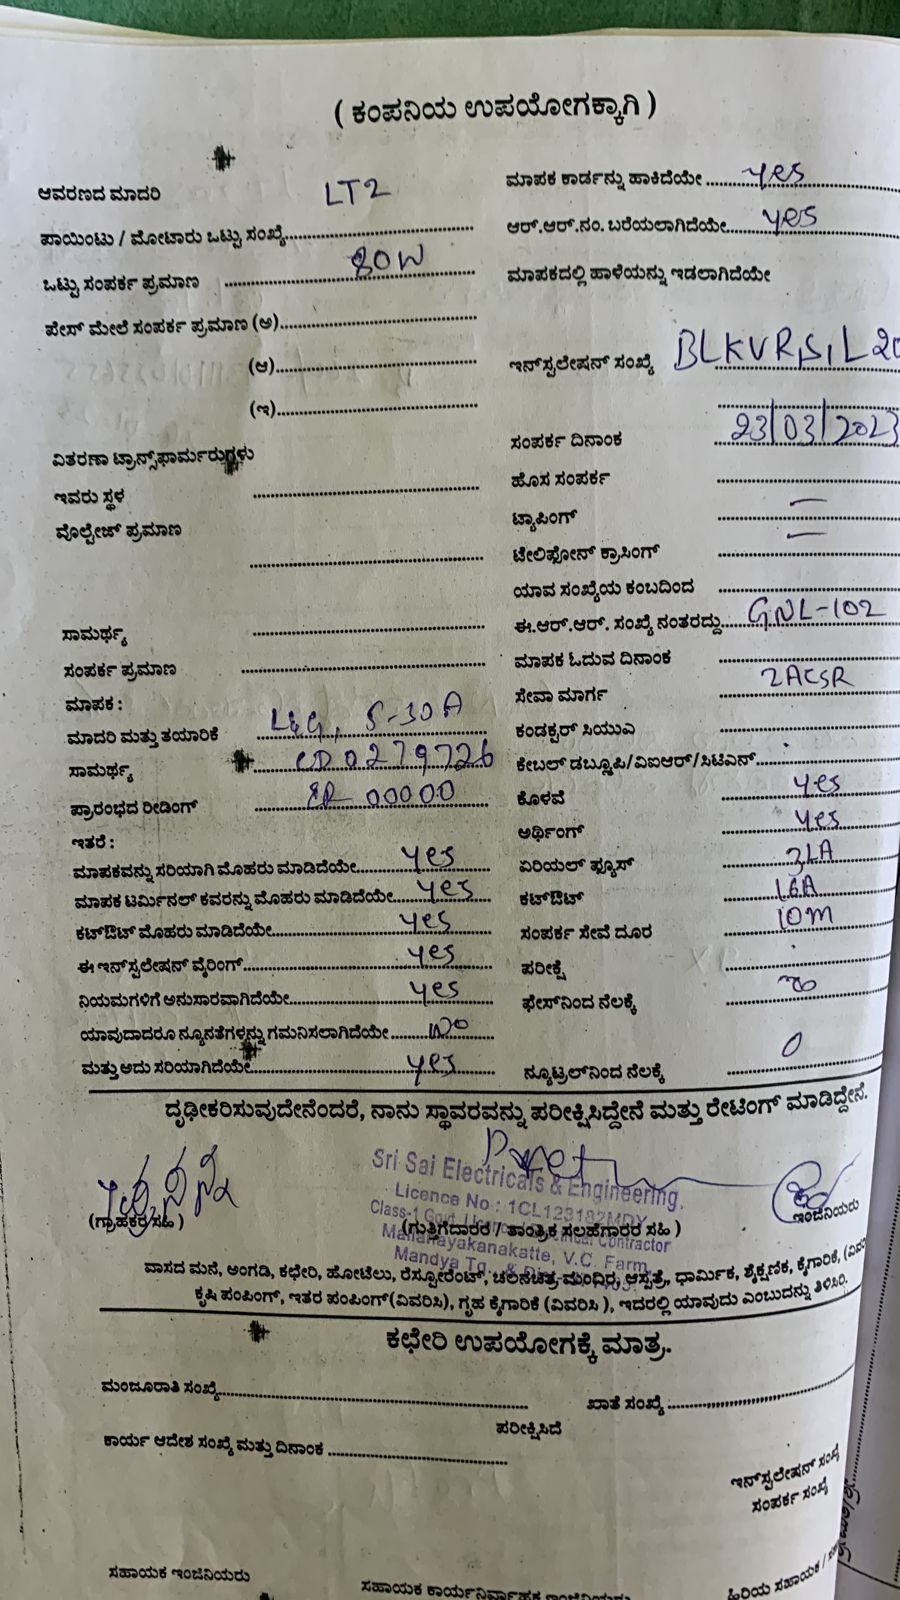 ( ಕಂಪನಿಯ ಉಪಯೋಗಕ್ಕಾಗಿ )
ಆವರಣದ ಮಾದರಿ LT2
ಪಾಯಿಂಟು / ಮೋಟಾರು ಒಟ್ಟು ಸಂಖ್ಯೆ
ಒಟ್ಟು ಸಂಪರ್ಕ ಪ್ರಮಾಣ 80W
ಪೇಸ್ ಮೇಲೆ ಸಂಪರ್ಕ ಪ್ರಮಾಣ (ಅ)
(ಆ)
(ಇ)
ವಿತರಣಾ ಟ್ರಾನ್ಸ್‌ಫಾರ್ಮರುಗಳು
ಇವರು ಸ್ಥಳ
ವೊಲ್ಟೇಜ್ ಪ್ರಮಾಣ
ಸಾಮರ್ಥ್ಯ
ಸಂಪರ್ಕ ಪ್ರಮಾಣ
ಮಾಪಕ :
ಮಾದರಿ ಮತ್ತು ತಯಾರಿಕೆ L&G, 5-30A
ಸಾಮರ್ಥ್ಯ 0279726
ಪ್ರಾರಂಭದ ರೀಡಿಂಗ್ 00000
ಇತರೆ :
ಮಾಪಕವನ್ನು ಸರಿಯಾಗಿ ಮೊಹರು ಮಾಡಿದೆಯೇ yes
ಮಾಪಕ ಟರ್ಮಿನಲ್ ಕವರನ್ನು ಮೊಹರು ಮಾಡಿದೆಯೇ yes
ಕಟ್‌ಔಟ್ ಮೊಹರು ಮಾಡಿದೆಯೇ yes
ಈ ಇನ್‌ಸ್ಟಲೇಷನ್ ವೈರಿಂಗ್ yes
ನಿಯಮಗಳಿಗೆ ಅನುಸಾರವಾಗಿದೆಯೇ yes
ಯಾವುದಾದರೂ ನ್ಯೂನತೆಗಳನ್ನು ಗಮನಿಸಲಾಗಿದೆಯೇ No
ಮತ್ತು ಅದು ಸರಿಯಾಗಿದೆಯೇ yes
ಮಾಪಕ ಕಾರ್ಡನ್ನು ಹಾಕಿದೆಯೇ yes
ಆರ್.ಆರ್.ನಂ. ಬರೆಯಲಾಗಿದೆಯೇ yes
ಮಾಪಕದಲ್ಲಿ ಹಾಳೆಯನ್ನು ಇಡಲಾಗಿದೆಯೇ
ಇನ್‌ಸ್ಟಲೇಷನ್ ಸಂಖ್ಯೆ BLKVR,S,L20
ಸಂಪರ್ಕ ದಿನಾಂಕ 23/03/2023
ಹೊಸ ಸಂಪರ್ಕ
ಟ್ಯಾಪಿಂಗ್ —
ಟೇಲಿಫೋನ್ ಕ್ರಾಸಿಂಗ್ —
ಯಾವ ಸಂಖ್ಯೆಯ ಕಂಬದಿಂದ
ಈ.ಆರ್.ಆರ್. ಸಂಖ್ಯೆ ನಂತರದ್ದು GNL-102
ಮಾಪಕ ಓದುವ ದಿನಾಂಕ
ಸೇವಾ ಮಾರ್ಗ 2ACSR
ಕಂಡಕ್ಟರ್ ಸಿಯುಎ
ಕೇಬಲ್ ಡಬ್ಲ್ಯೂಪಿ/ವಿಐಆರ್/ಸಿಟಿಎನ್
ಕೊಳವೆ yes
ಅರ್ಥಿಂಗ್ yes
ಏರಿಯಲ್ ಫ್ಯೂಸ್
ಕಟ್‌ಔಟ್ 16A
ಸಂಪರ್ಕ ಸೇವೆ ದೂರ 10m
ಪರೀಕ್ಷೆ
ಫೇಸ್‌ನಿಂದ ನೆಲಕ್ಕೆ
ನ್ಯೂಟ್ರಲ್‌ನಿಂದ ನೆಲಕ್ಕೆ 0
ದೃಢೀಕರಿಸುವುದೇನೆಂದರೆ, ನಾನು ಸ್ಥಾವರವನ್ನು ಪರೀಕ್ಷಿಸಿದ್ದೇನೆ ಮತ್ತು ರೇಟಿಂಗ್ ಮಾಡಿದ್ದೇನೆ.
Sri Sai Electricals & Engineering,
Licence No : 1CL123182MDY
Class-1 Govt. Contractor
(ಗ್ರಾಹಕರ ಸಹಿ )
(ಗುತ್ತಿಗೆದಾರರ / ತಾಂತ್ರಿಕ ಸಲಹೆಗಾರರ ಸಹಿ )
ಇಂಜಿನಿಯರು
Mallanayakanakatte, V.C. Farm,
Mandya Tq.
ವಾಸದ ಮನೆ, ಅಂಗಡಿ, ಕಛೇರಿ, ಹೋಟೆಲು, ರೆಸ್ಟೋರೆಂಟ್, ಚಲನಚಿತ್ರ ಮಂದಿರ, ಆಸ್ಪತ್ರೆ, ಧಾರ್ಮಿಕ, ಶೈಕ್ಷಣಿಕ, ಕೈಗಾರಿಕೆ, (ವಿವರಿ
ಕೃಷಿ ಪಂಪಿಂಗ್, ಇತರ ಪಂಪಿಂಗ್(ವಿವರಿಸಿ), ಗೃಹ ಕೈಗಾರಿಕೆ (ವಿವರಿಸಿ ), ಇದರಲ್ಲಿ ಯಾವುದು ಎಂಬುದನ್ನು ತಿಳಿಸಿ.
ಕಛೇರಿ ಉಪಯೋಗಕ್ಕೆ ಮಾತ್ರ.
ಮಂಜೂರಾತಿ ಸಂಖ್ಯೆ
ಖಾತೆ ಸಂಖ್ಯೆ
ಪರೀಕ್ಷಿಸಿದೆ
ಕಾರ್ಯ ಆದೇಶ ಸಂಖ್ಯೆ ಮತ್ತು ದಿನಾಂಕ
ಇನ್‌ಸ್ಟಲೇಷನ್ ಸಂಖ್ಯೆ
ಸಂಪರ್ಕ ಸಂಖ್ಯೆ
ಸಹಾಯಕ ಇಂಜಿನಿಯರು
ಸಹಾಯಕ ಕಾರ್ಯನಿರ್ವಾಹಕ ಇಂಜಿನಿಯರು
ಹಿರಿಯ ಸಹಾಯಕ /